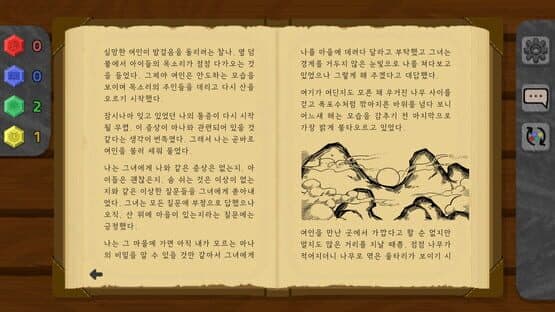 0
0
2
1
실망한 여인이 발걸음을 돌리려는 찰나, 옆 덤
불에서 아이들의 목소리가 점점 다가오는 것
을 들었다. 그제야 여인은 안도하는 모습을
보이며 목소리의 주인들을 데리고 다시 산을
오르기 시작했다.
잠시나마 잊고 있었던 나의 통증이 다시 시작
될 무렵, 이 증상이 마나와 관련되어 있을 것
같다는 생각이 번뜩였다. 그래서 나는 곧바로
여인을 불러 세워 물었다.
나는 그녀에게 나와 같은 증상은 없는지, 아
이들은 괜찮은지, 숨 쉬는 것은 이상이 없는
지와 같은 이상한 질문들을 그녀에게 쏟아내
었다. 그녀는 모든 질문에 부정으로 답했으나
오직, 산 위에 마을이 있는지라는 질문에는
긍정했다.
나는 그 마을에 가면 아직 내가 모르는 마나
의 비밀을 알 수 있을 것만 같아서 그녀에게
나를 마을에 데려다 달라고 부탁했고 그녀는
경계를 거두지 않은 눈빛으로 나를 쳐다보고
있었으나 그렇게 해 주겠다고 대답했다.
여기가 어딘지도 모른 채 우거진 나무 사이를
걷고 폭포수처럼 깎아지른 바위를 넘다 보니
어느새 해는 모습을 감추기 전 마지막으로
가장 밝게 불타오르고 있었다.
여인을 만난 곳에서 가깝다고 할 순 없지만
멀지도 않은 거리를 지날 때쯤, 점점 나무가
적어지더니 나무로 엮은 울타리가 보이기 시